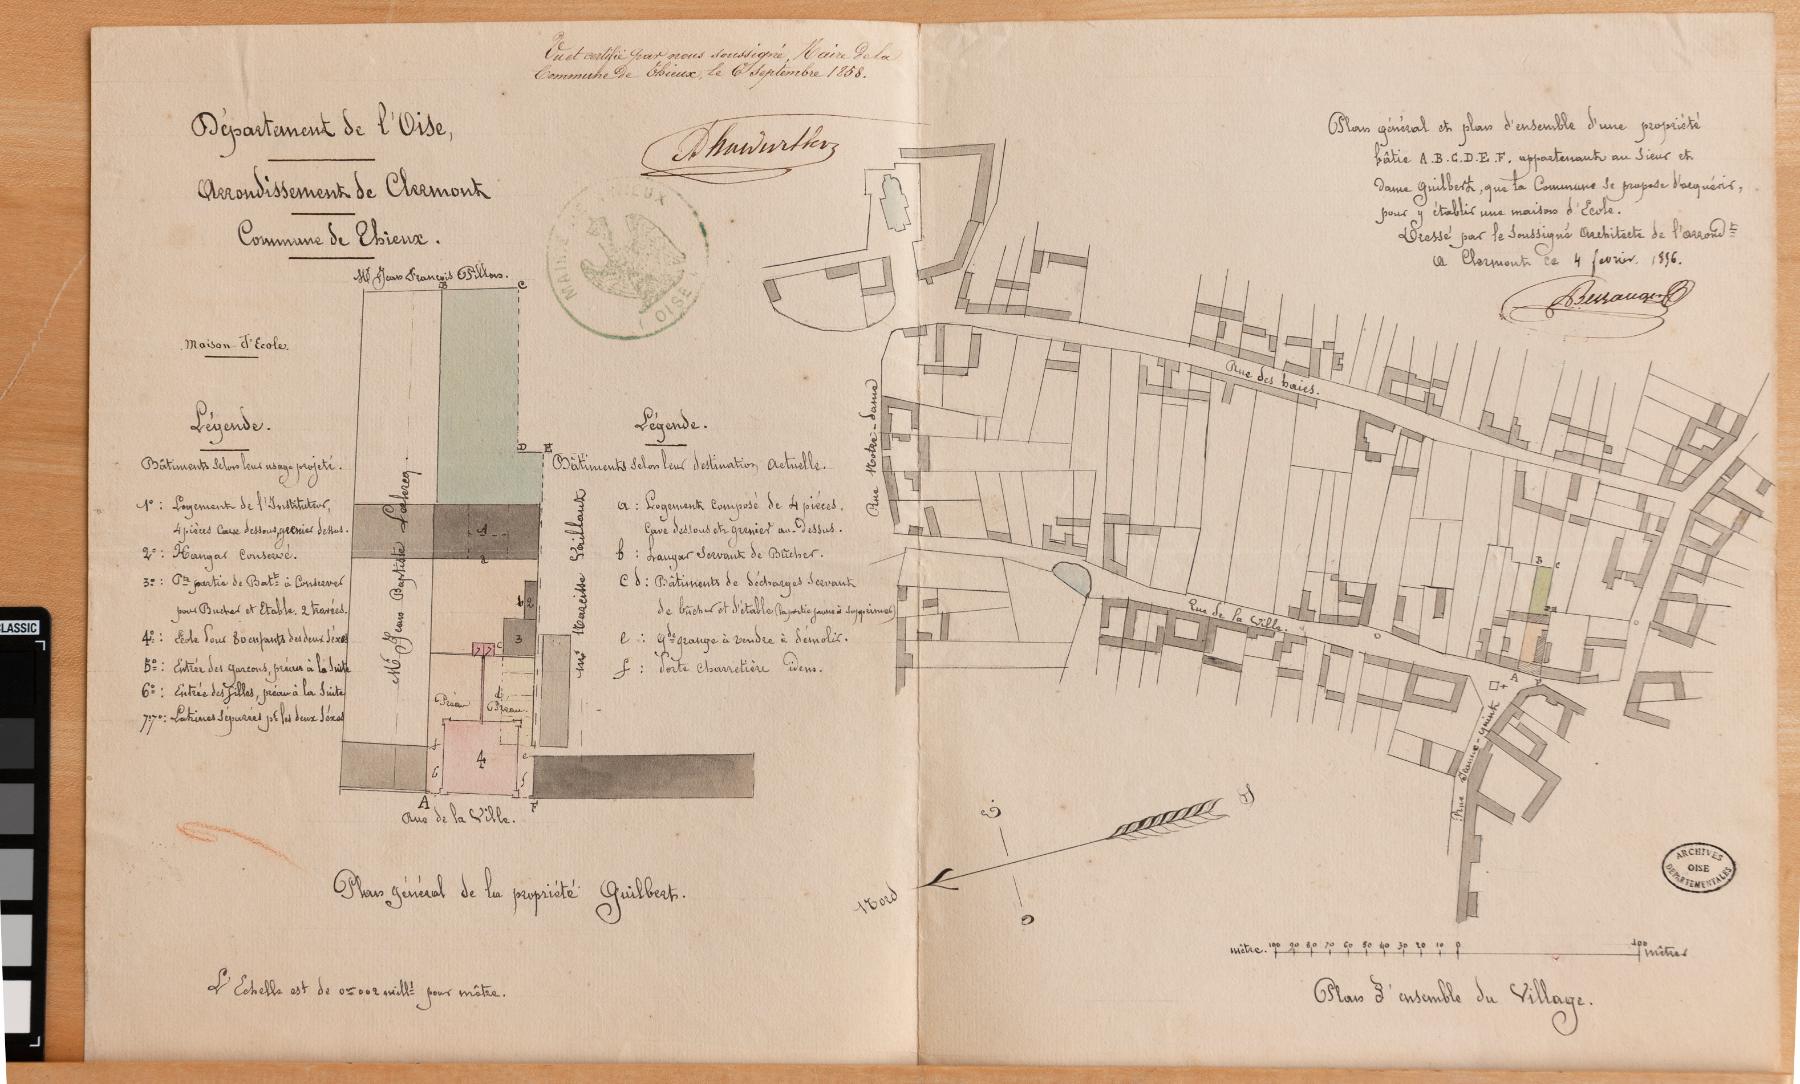 Vu et certifié par nous soussigné, Maire de la
Commune de Thieux, le 6 septembre 1858.
Département de l'Oise,
Arrondissement de Clermont
Commune de Thieux.
Mr Jean François Pillon.
B
C
Maison d'Ecole.
Légende.
Bâtiments selon leur usage projeté.
1º : Logement de l'Instituteur,
4 pièces Cave dessous, grenier dessus.
2º : Hangar Conservé.
3º : Pie partie de Batt à Conserver
pour Bucher et Etable. 2 travées.
4º : Ecole pour 80 enfants des deux Séxes
5º : Entrée des garçons, préau à la Suite
6º : Entrée des filles, préau à la Suite
7º 7º : Latrines Séparées pr les deux Séxes
Mr Jean Baptiste
D
E
1
a
b
2
3
c
7
7
d
Préau
Préau
4
f
6
e
5
A
F
Rue de la Ville.
Mr Narcisse Vaillant
MAIRIE DE THIEUX
(OISE)
Légende.
Bâtiments selon leur destination actuelle.
a : Logement composé de 4 pièces,
Cave dessous et grenier au-Dessus.
b : hangar Servant de Bûcher.
c d : Bâtiments de décharges Servant
de bûcher et d'étable (la partie jaune à Supprimer)
e : gde grange à vendre à démolir.
f : Porte charretière idem.
Plan général de la propriété Guilbert.
L'Echelle est de 0m 002 mill. pour mètre.
Plan général et plan d'ensemble d'une propriété
bâtie A.B.C.D.E.F. appartenant au Sieur et
dame Guilbert, que la Commune se propose d'acquérir,
pour y établir une maison d'Ecole.
Dressé par le Soussigné Architecte de l'arrondt
A Clermont ce 4 fevrier 1856.
Rue des haies.
Rue Notre-Dame
Rue de la Ville.
B
C
A
F
Nord
S
ARCHIVES
OISE
DEPARTEMENTALES
mètre. 100 90 80 70 60 50 40 30 20 10 0 100 mètres
Plan d'ensemble du Village.